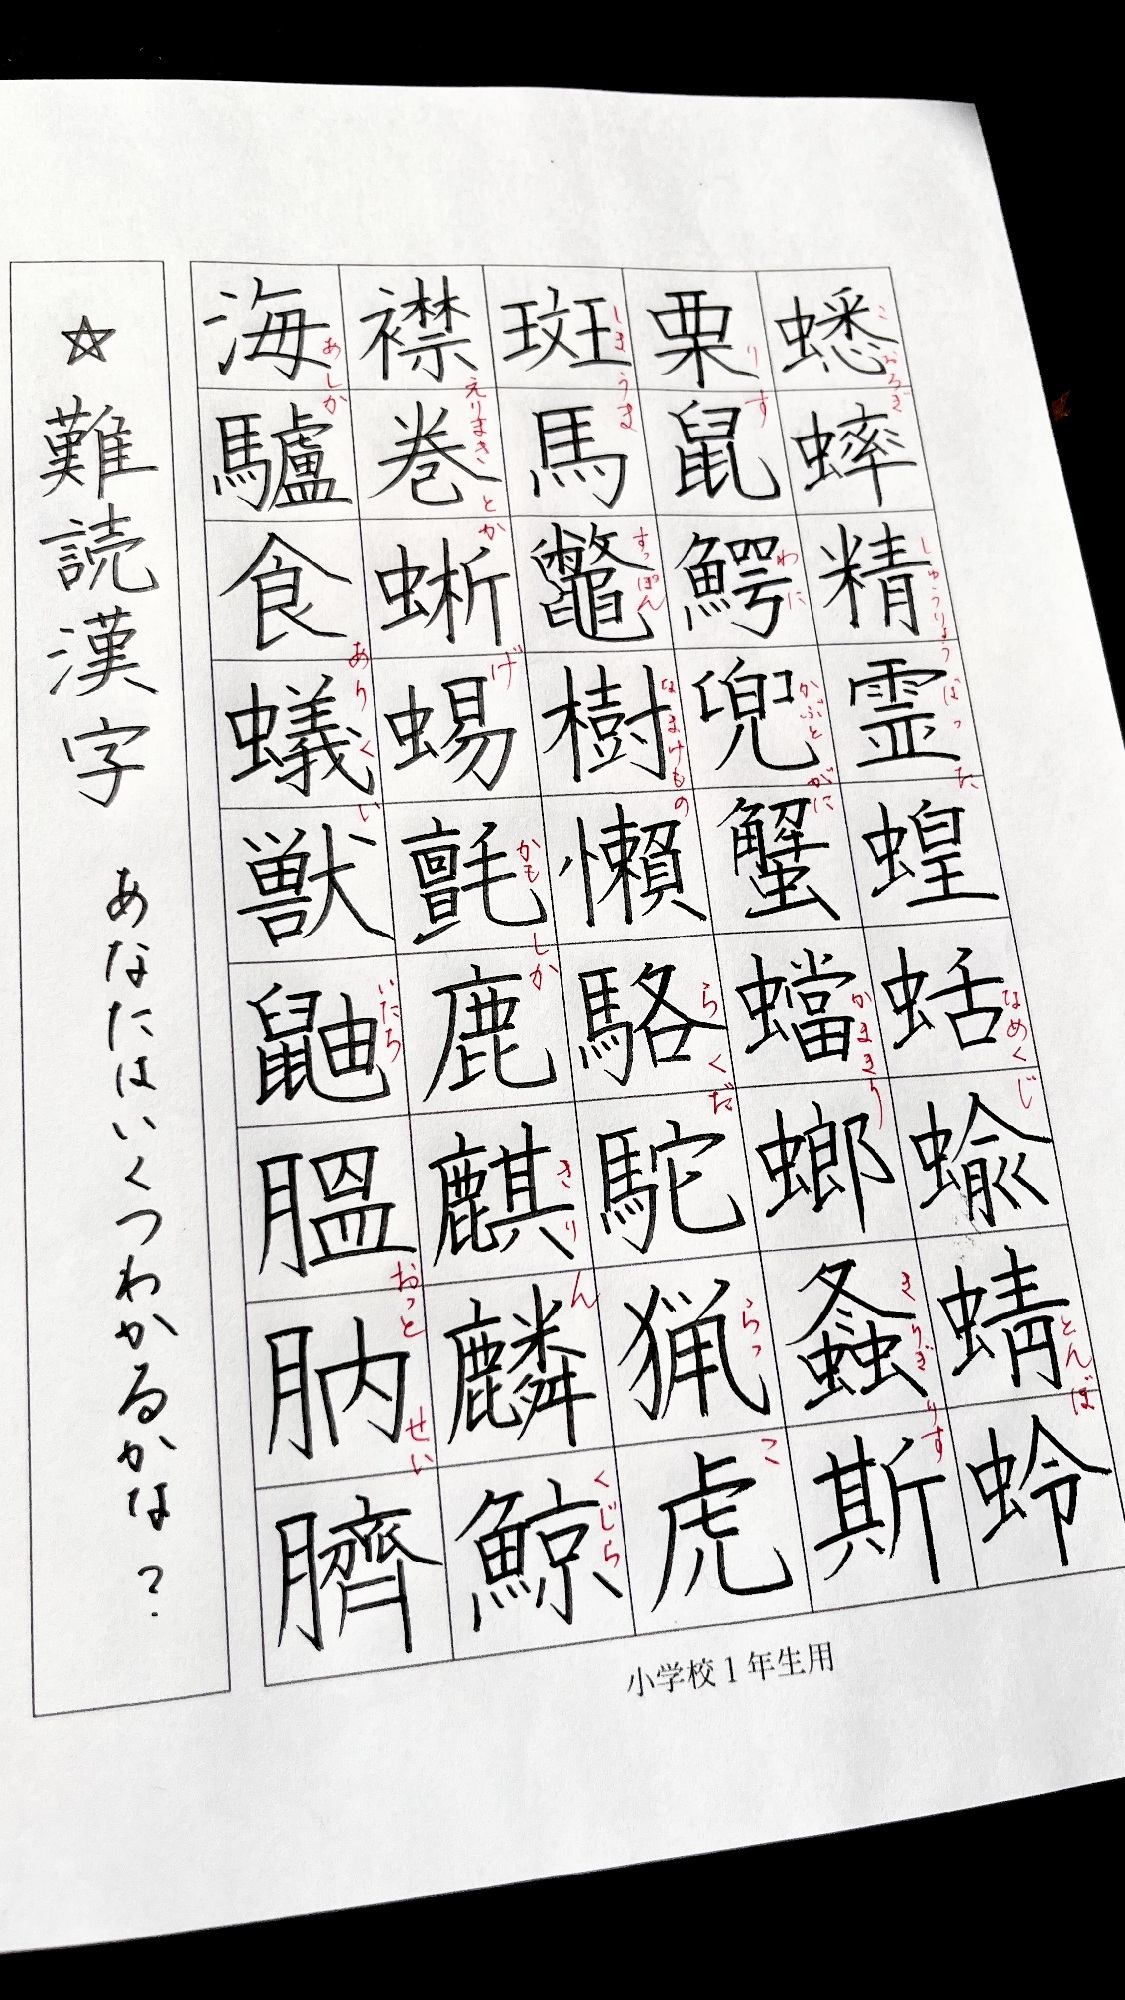 蟋蟀精霊蝗蛞蝓蜻蛉
こおろぎ しょうりょうばった なめくじ とんぼ
栗鼠鰐兜蟹蟷螂螽斯
りす わに かぶとがに かまきり きりぎりす
斑馬鼈樹懶駱駝猟虎
しまうま すっぽん なまけもの らくだ らっこ
襟巻蜥蜴氈鹿麒麟鯨
えりまきとかげ かもしか きりん くじら
海驢食蟻獣鼬膃肭臍
あしか ありくい いたち おっとせい
☆難読漢字 あなたはいくつわかるかな?
小学校1年生用